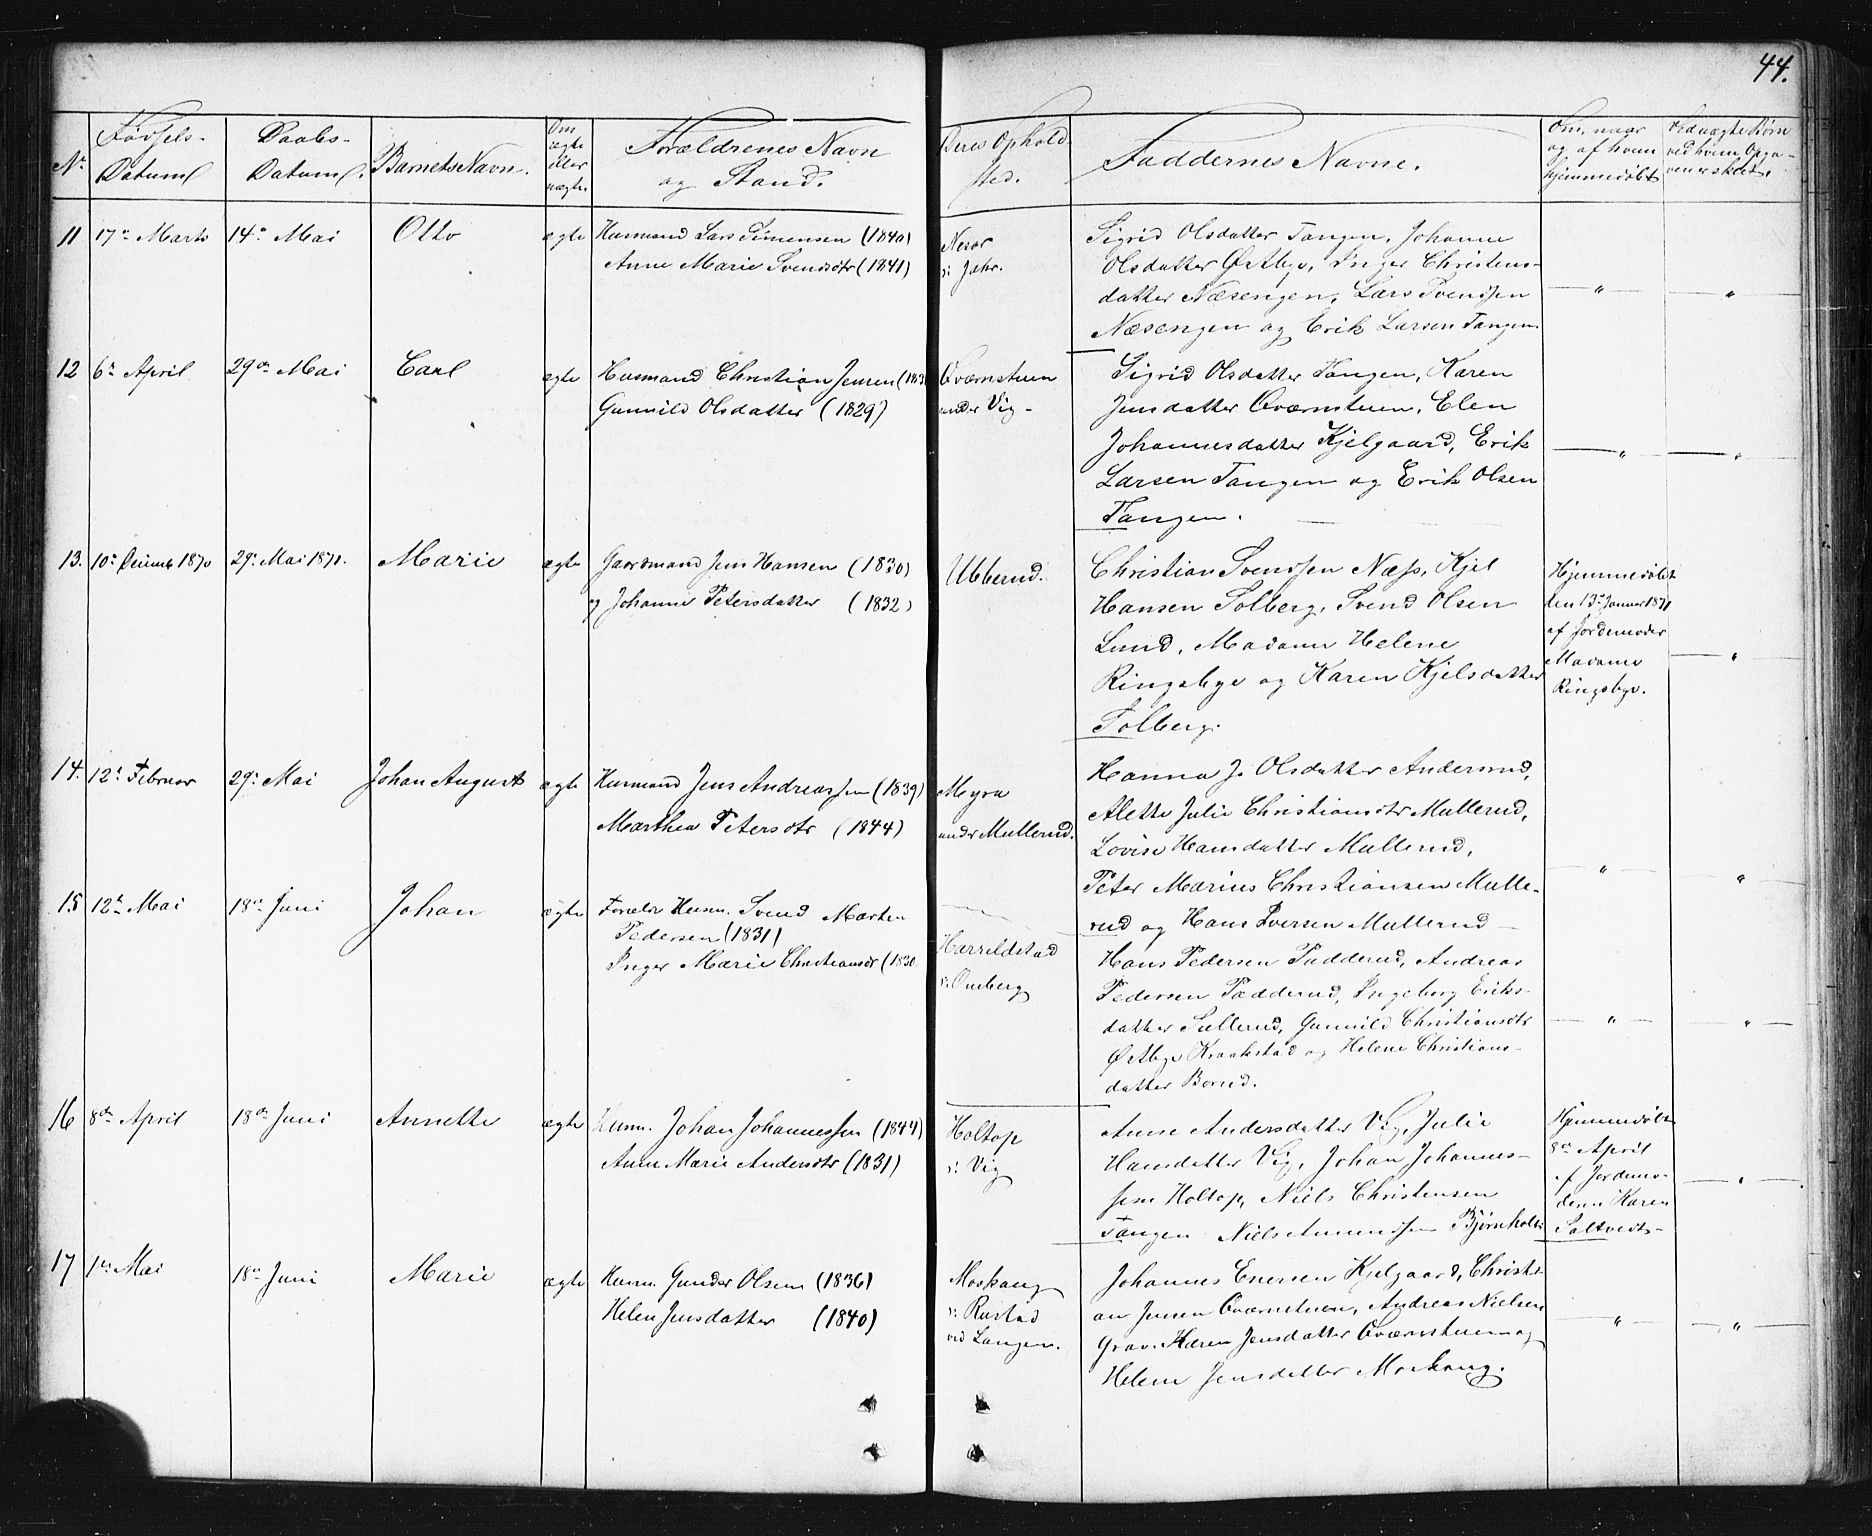 44.
Nr
Fødsels-
Datum
Daabs-
Datum.
Barnets Navn.
Om
ægte
eller
uægte.
Forældrenes Navn
og Stand.
Deres Ophold
sted.
Faddernes Navne.
Om, naar
og af hvem
hjemmedøbt
Ved uægte Børn
ved hvem Opga-
ven er skeet.
11 17de Marts 14de Mai Otto ægte Husmand Lars Simensen (1840)
Anne Marie Svendsdtr (1841)
Nesør
u: Jahr.
Sigrid Olsdatter Tangen, Johanne
Olsdatter Østbye, Inger Christens-
datter Næsengen, Lars Svendsen
Næsengen og Erik Larsen Tangen
— " — — " —
12 6te April 29de Mai Carl ægte Husmand Christian Jensen (183
Gunnild Olsdatter (1829)
Qværnstuen
under Vig -
Sigrid Olsdatter Tangen, Karen
Jensdatter Qværnstuen, Elen
Johannesdatter Kjelgaard, Erik
Larsen Tangen og Erik Olsen
Tangen.
— " — — " —
13. 10de Decemb 1870 29de Mai 1871. Marie ægte Gaardmand Jens Hansen (1830)
og Johanne Petersdatter (1832)
Ubberud.
Christian Svendsen Næss, Kjel
Hansen Solberg, Svend Olsen
Lund, Madame Helene
Ringsbye og Karen Kjelsdatter
Solberg.
Hjemmedøbt
den 13de Januar 1871
af Jordemoder
Madame
Ringsbye.
— " —
14. 12te Februar 29de Mai Johan August ægte Husmand Jens Andreassen (1839)
Marthea Petersdtr (1844)
Myra
under Mullerud.
Hanna J. Olsdatter Anderud,
Alette Julie Christiansdtr Mullerud,
Lovise Hansdatter Mullerud,
Peter Marius Christiansen Mulle-
rud og Hans Iversen Mullerud —
— " — — " —
15 12te Mai 18de Juni Johan ægte Forældr Husm. Svend Marten
Pedersen (1831)
Inger Marie Christiansdtr (1830
Harrildstad
u: Omberg
Hans Pedersen Padderud, Andreas
Pedersen Padderud, Ingeborg Eriks-
datter Sullerud, Gunnild Christiansdtr
Østbye Kraakstad og Helene Christians-
datter Borud.
— " — — " —
16 8de April 18de Juni Annette ægte Husm. Johan Johannessen (1844)
Anne Marie Andersdtr (1831)
Holtop
u: Vig
Anne Andersdatter Vig, Julie
Hansdatter Vig, Johan Johannes-
sen Holtop, Niels Christensen
Tangen Niels Amundsen Bjørnholt
Hjemmedøbt
8de April
af Jordemo-
deren Karen
Saltvedt-
— " —
17 1ste Mai 18de Juni Marie ægte Husm. Gunder Olsen (1836)
Helen Jensdatter (1840)
Moskaug
u: Rustad
ved Langen.
Johannes Enersen Kjelgaard, Christi
an Jensen Qværnstuen, Andreas Nielsen
Grav. Karen Jensdatter Qværnstuen og
Helene Jensdatter Moskaug.
— " — — " —